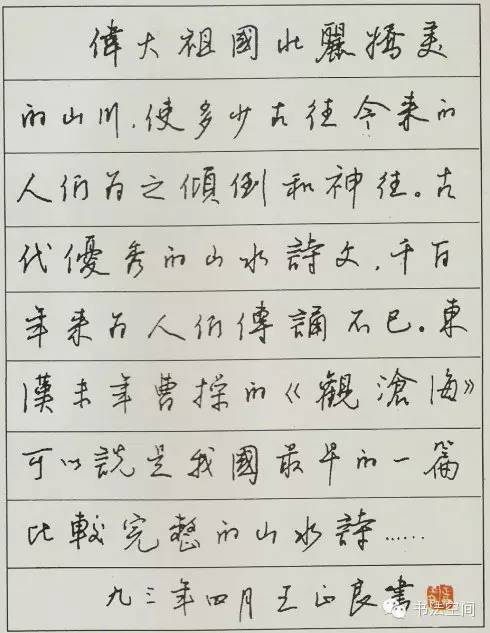 偉大祖國壯麗嬌美
的山川，使多少古往今来的
人们为之傾倒和神往。古
代優秀的山水詩文，千百
年来为人们傳誦不已。東
漢末年曹操的《觀滄海》
可以説是我國最早的一篇
比較完整的山水詩……
九三年四月王正良書
书法空间